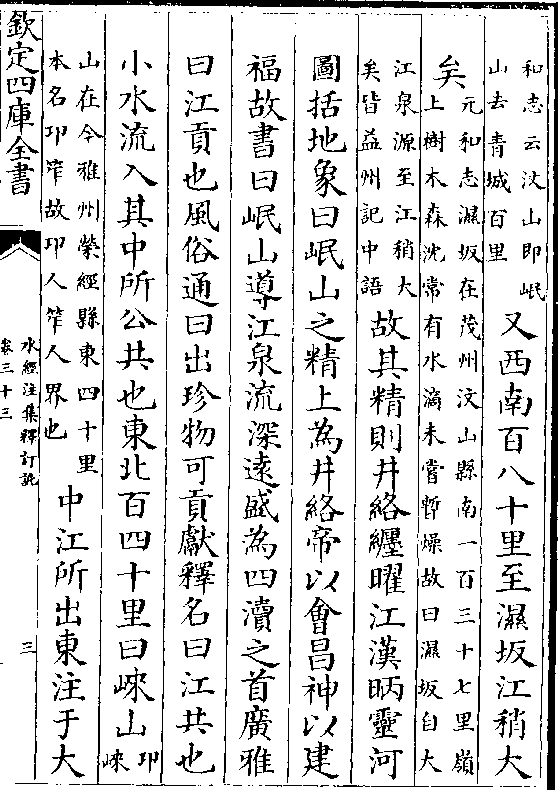 和志云汶山即岷
山去青城百里
又西南百八十里至濕坂江稍大
矣
元和志濕坂在茂州汶山縣南一百三十七里嶺
上樹木森沈常有水滴未嘗暫燥故曰濕坂自大
江泉源至江稍大
矣皆益州記中語
故其精則井絡纒曜江漢昞靈河
圖括地象曰岷山之精上為井絡帝以會昌神以建
福故書曰岷山導江泉流深逺盛為四瀆之首廣雅
曰江貢也風俗通曰出珍物可貢獻釋名曰江共也
小水流入其中所公共也東北百四十里曰崍山
邛崍
山在今雅州榮經縣東四十里
本名邛笮故邛人笮人界也
中江所出東注于大
欽定四庫全書
水經注集釋訂訛
卷三十三
三